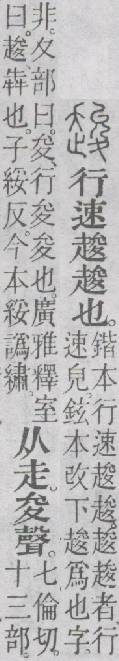 行速䞭䞭也。
鍇本行速䞭䞭䞭者行
速皃鉉本改下䞭爲也字
非。夊部曰。夋、行夋夋也。廣雅釋室
曰。䞭犇也。子綏反。今本綏譌繡。
从走。夋聲。
七倫切。
十三部。